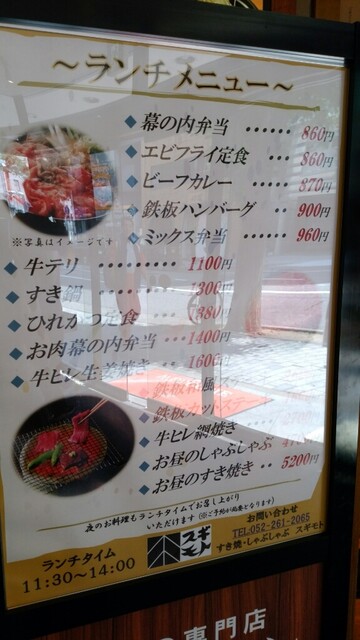 〜ランチメニュー〜
◆ 幕の内弁当 ・・・・・・ 860円
◆ エビフライ定食 ・・・ 860円
◆ ビーフカレー ・・・・・ 870円
◆ 鉄板ハンバーグ ・・ 900円
◆ ミックス弁当 ・・・・ 960円
※写真はイメージです
◆ 牛テリ ・・・・・・・・・ 1100円
◆ すき鍋 1300円
◆ ひれかつ定食 ・・・ 1380円
◆ お肉幕の内弁当 ・1400円
◆ 牛ヒレ生姜焼き 1600円
鉄板和風ステ
鉄板カットステー
牛ヒレ網焼き
お昼のしゃぶしゃぶ
お昼のすき焼き ・・ 5200円
夜のお料理もランチタイムでお召し上がり
いただけます (※ご予約が必要となります)
ランチタイム
11:30〜14:00
スギモト
お問い合わせ
TEL:052-261-2065
すき焼・しゃぶしゃぶ スギモト
専門店